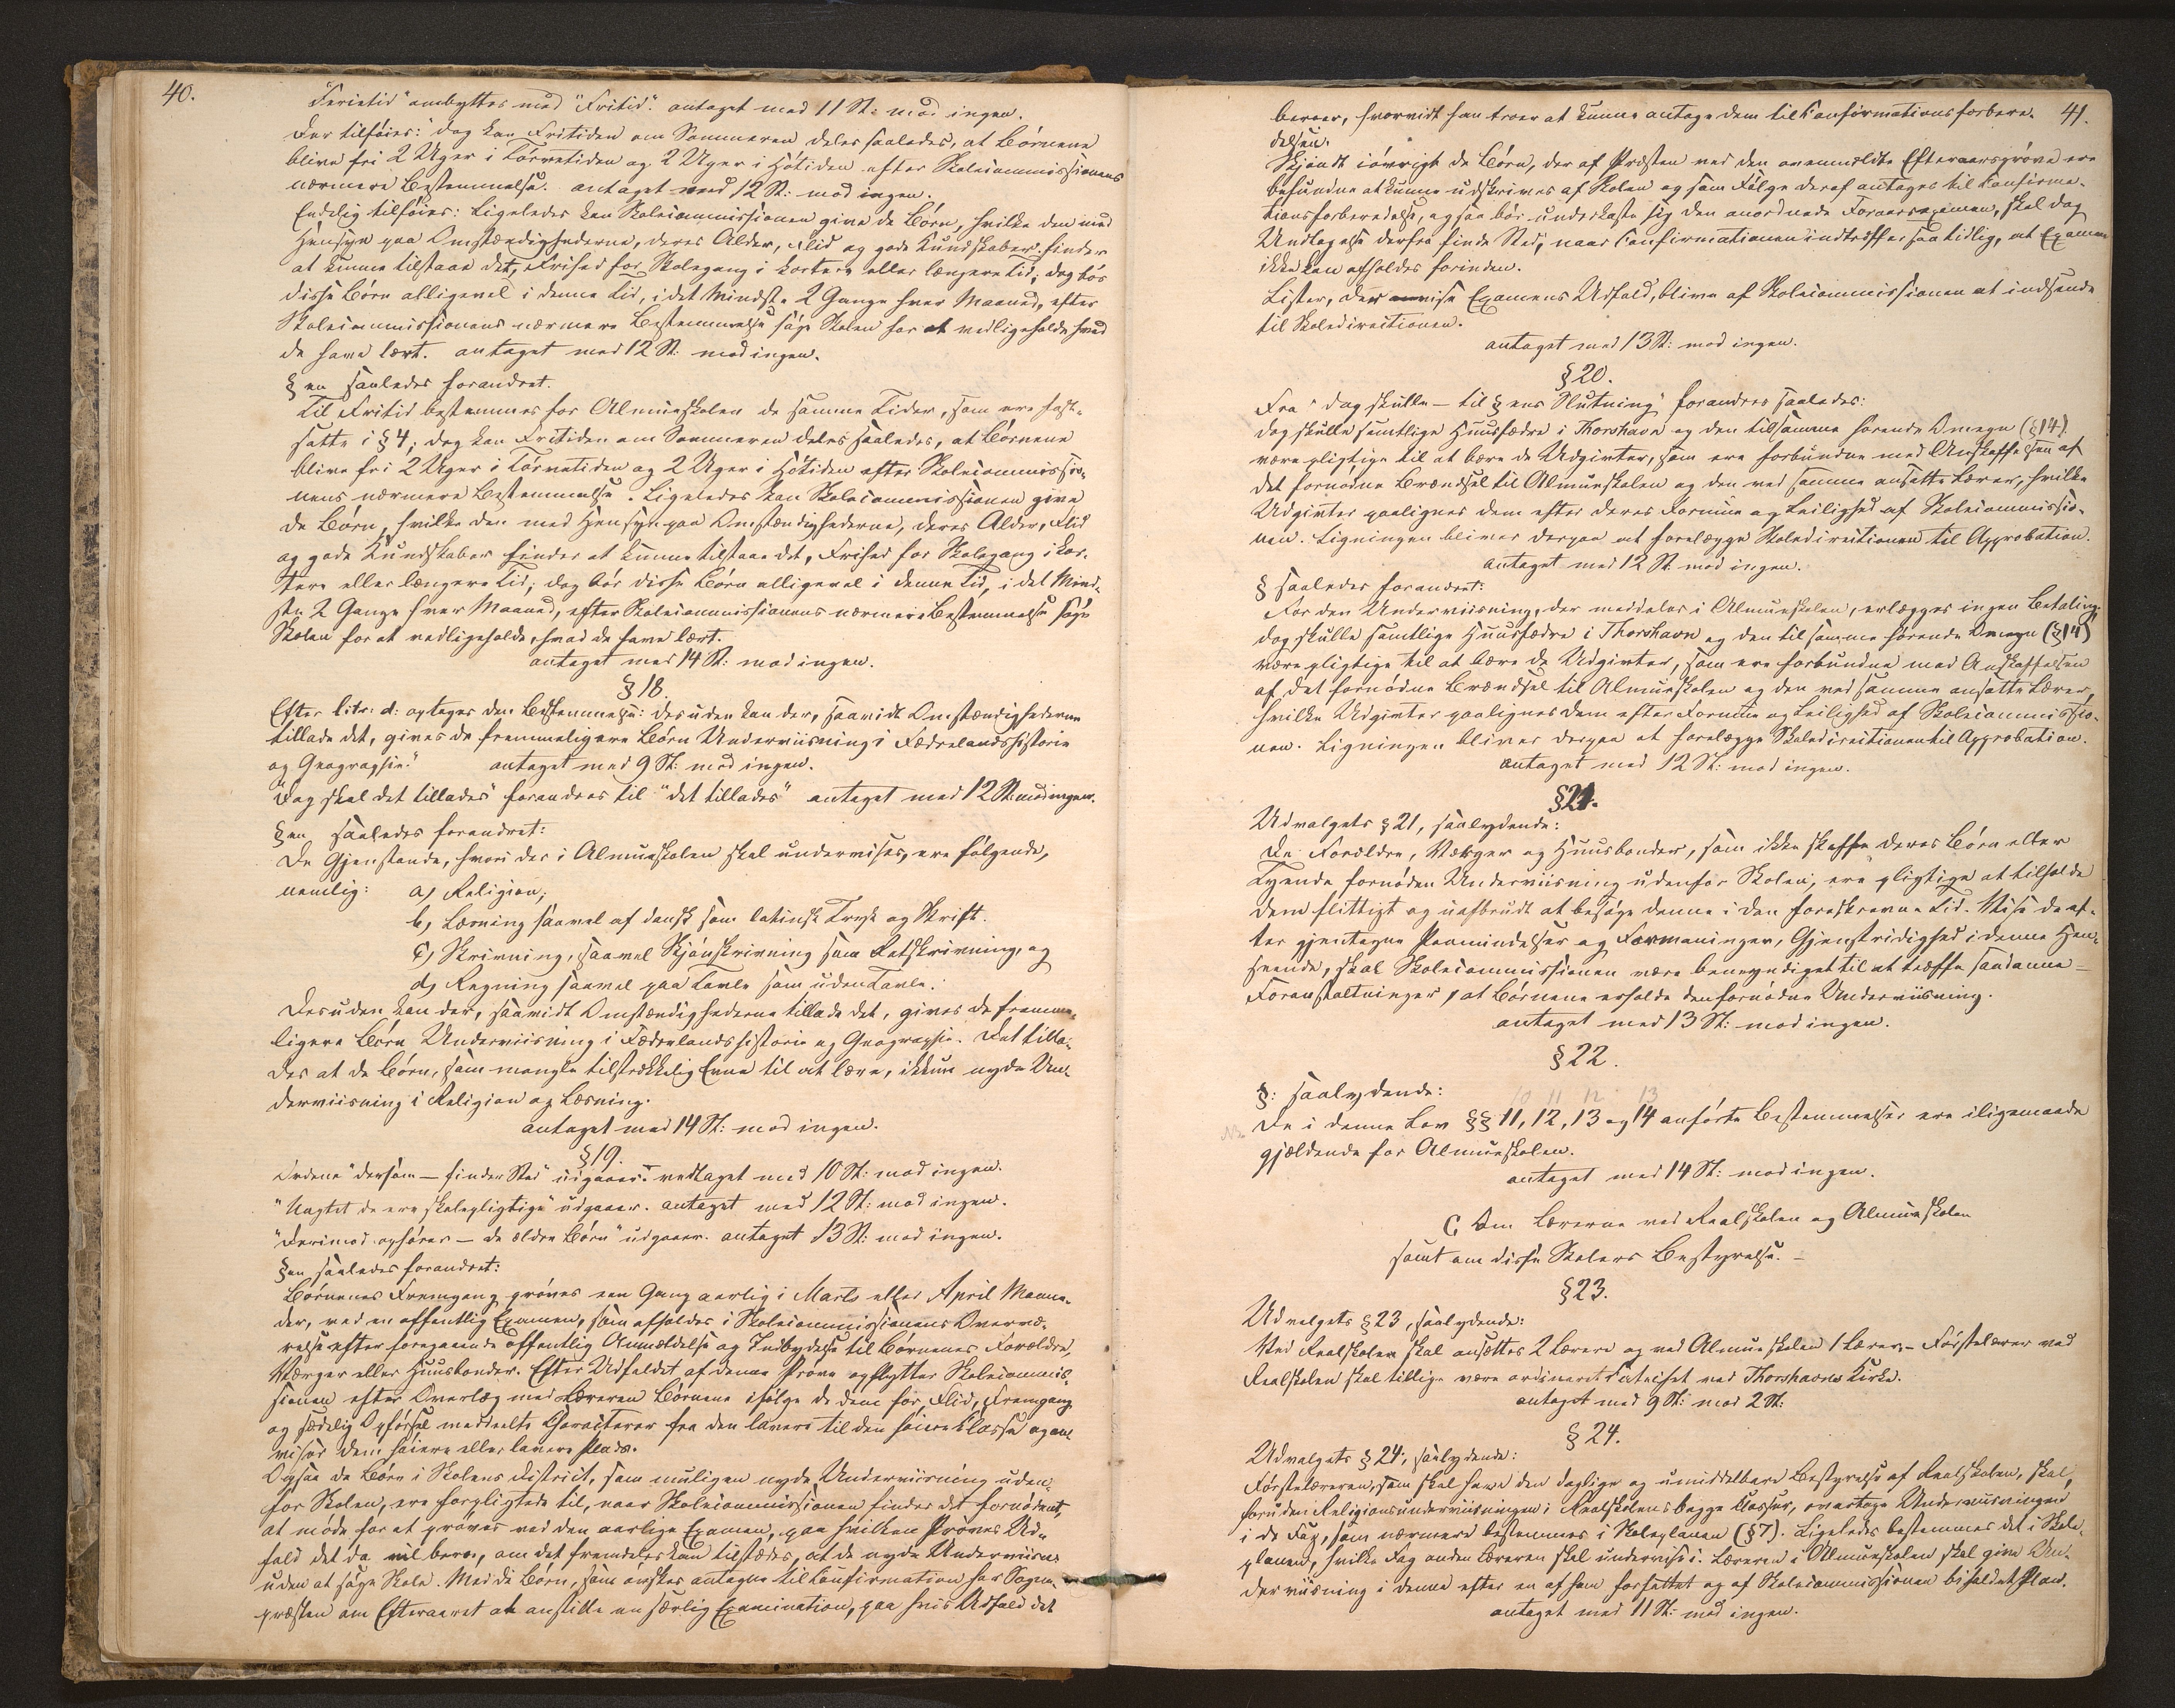 40.
"Ferietid" ombyttes med "Fritid". antaget med 11 St: mod ingen.
Der tilføies: "dog kan Fritiden om Sommeren deles saaledes, at Børnene
blive fri 2 Uger i Tørvetiden og 2 Uger i Høtiden efter Skolecommissionens
nærmere Bestemmelse. antaget med 12 St: mod ingen.
Endelig tilføies: Ligeledes kan Skolecommissionen give de Børn, hvilke den med
Hensyn paa Omstændighederne, deres Alder, Flid og gode Kundskaber finder
at kunne tilstaae det, Frihed for Skolegang i kortere eller længere Tid; dog bør
disse Børn alligevel i denne Tid, i det Mindste 2 Gange hver Maaned, efter
Skolecommissionens nærmere Bestemmelse søge Skolen for at vedligeholde hvad
de have lært. antaget med 12 St: mod ingen.
§en saaledes forandret.
Til Fritid bestemmes for Almueskolen de samme Tider, som ere fast-
satte i § 4; dog kan Fritiden om Sommeren deles saaledes, at Børnene
blive fri 2 Uger i Tørvetiden og 2 Uger i Høtiden efter Skolecommissio-
nens nærmere Bestemmelse. Ligeledes kan Skolecommissionen give
de Børn, hvilke den med Hensyn paa Omstændighederne, deres Alder, Flid
og gode Kundskaber finder at kunne tilstaae det, Frihed for Skolegang i kor-
tere eller længere Tid; dog bør disse Børn alligevel i denne Tid, i det Mind-
ste 2 Gange hver Maaned, efter Skolecommissionens nærmere Bestemmelse søge
Skolen for at vedligeholde, hvad de have lært.
antaget med 14 St: mod ingen.
§ 18.
Efter litr: d: optages den Bestemmelse: desuden kan der, saavidt Omstændighederne
tillade det, gives de fremmeligere Børn Underviisning i Fædrelandshistorie
og Geographie." antaget med 9 St: mod ingen.
"Dog skal det tillades" forandres til "det tillades" antaget med 12 St: mod ingen.
§en saaledes forandret:
De Gjenstande, hvori der i Almueskolen skal undervises, ere følgende,
nemlig: a) Religion;
b) Læsning saavel af dansk som latinsk Tryk og Skrift.
c) Skrivning, saavel Skjønskrivning som Retskrivning, og
d) Regning saavel paa Tavle som uden Tavle.
Desuden kan der, saavidt Omstændighederne tillade det, gives de fremme-
ligere Børn Underviisning i Fædrelandshistorie og Geographie. Det tilla-
des at de Børn, som mangle tilstrækkelig Evne til at lære, ikkun nyde Un-
derviisning i Religion og Læsning.
antaget med 14 St: mod ingen.
§ 19.
Ordene "dersom – finder Sted" udgaaer. vedtaget med 10 St: mod ingen.
"Uagtet de ere skolepligtige" udgaaer. antaget med 12 St: mod ingen.
"Derimod ophører – de ældre Børn" udgaaer. antaget 13 St: mod ingen.
§en saaledes forandret:
Børnenes Fremgang prøves een Gang aarlig i Marts eller April Maane-
der, ved en offentlig Examen, som afholdes i Skolecommissionens Overvæ-
relse efter foregaaende offentlig Anmeldelse og Indbydelse til Børnenes Forældre,
Værger eller Huusbonder. Efter Udfaldet af denne Prøve opflytter Skolecommis-
sionen efter Overlæg med Læreren Børnene ifølge de dem for Flid, Fremgang
og sædelig Opførsel meddeelte Characterer fra den lavere til den høiere Classe og an-
viser dem høiere eller lavere Plads.
Ogsaa de Børn i Skolens District, som muligen nyde Underviisning uden-
for Skolen, ere forpligtede til, naar Skolecommissionen finder det fornødent,
at møde for at prøves ved den aarlige Examen, paa hvilken Prøves Ud-
fald det da vil beroe, om det fremdeles kan tilstedes, at de nyde Underviisn:
uden at søge Skole. Med de Børn, som ønskes antagne til Confirmation har Sogne-
præsten om Efteraaret at anstille en særlig Examination, paa hvis Udfald det
41.
beroer, hvorvidt han troer at kunne antage dem til Confirmationsforbere-
delsen.
Skjøndt iøvrigt de Børn, der af Præsten ved den ovenmeldte Efteraarsprøve ere
befundne at kunne udskrives af Skolen og som Følge deraf antages til Confirma-
tionsforberedelse, ogsaa bør underkaste sig den anordnede Foraarsexamen, skal dog
Undtagelse derfra finde Sted, naar Confirmationen indtræffer saa tidlig, at Examen
ikke kan afholdes forinden.
Lister, der vise Examens Udfald, blive af Skolecommissionen at indsende
til Skoledirectionen.
antaget med 13 St: mod ingen.
§ 20.
Fra "dog skulle – til §ens Slutning" forandres saaledes:
dog skulle samtlige Huusfædre i Thorshavn og den til samme hørende Omegn (§ 14)
være pligtige til at bære de Udgivter, som ere forbundne med Anskaffelsen af
det fornødne Brændsel til Almueskolen og den ved samme ansatte Lærer, hvilke
Udgivter paalignes dem efter deres Formue og Leilighed af Skolecommissio-
nen. Ligningen bliver derpaa at forelægge Skoledirectionen til Approbation.
antaget med 12 St: mod ingen.
§ saaledes forandret:
For den Underviisning, der meddeles i Almueskolen, erlægges ingen Betaling.
dog skulle samtlige Huusfædre i Thorshavn og den til samme hørende Omegn (§ 14)
være pligtige til at bære de Udgivter, som ere forbundne med Anskaffelsen
af det fornødne Brændsel til Almueskolen og den ved samme ansatte Lærer,
hvilke Udgivter paalignes dem efter Formue og Leilighed af Skolecommissio-
nen. Ligningen bliver derpaa at forelægge Skoledirectionen til Approbation.
antaget med 12 St: mod ingen.
§ 21.
Udvalgets § 21, saalydende:
De Forældre, Værger og Huusbonder, som ikke skaffe deres Børn eller
Tyende fornøden Underviisning udenfor Skolen, ere pligtige at tilholde
dem flittigt og uafbrudt at besøge denne i den foreskrevne Tid. Vise de ef-
ter gjentagne Paamindelser og Formaninger, Gjenstridighed i denne Hen-
seende, skal Skolecommissionen være bemyndiget til at træffe saadanne
Foranstaltninger, at Børnene erholde den fornødne Underviisning.
antaget med 13 St: mod ingen.
§ 22.
§: saalydende:
10 11 12 13
De i denne Lov §§ 11, 12, 13 og 14 anførte Bestemmelser ere iligemaade
gjældende for Almueskolen.
antaget med 14 St: mod ingen.
C. Om Lærerne ved Realskolen og Almueskolen
samt om disse Skolers Bestyrelse. –
§ 23.
Udvalgets § 23, saalydende:
Ved Realskolen skal ansættes 2 Lærere og ved Almueskolen 1 Lærer. – Førstelærer ved
Realskolen skal tillige være ordineret Catechet ved Thorshavns Kirke.
antaget med 9 St: mod 2 St:
§ 24.
Udvalgets § 24, saalydende:
Førstelæreren, som skal have den daglige og umiddelbare Bestyrelse af Realskolen, skal,
foruden Religionsunderviisningen i Realskolens begge Classer, overtage Underviisningen
i de Fag, som nærmere bestemmes i Skoleplanen (§ 7). Ligeledes bestemmes det i Skole-
planen, hvilke Fag anden Læreren skal undervise i. Læreren i Almueskolen skal give Un-
derviisning i denne efter en af ham forfattet og af Skolecommissionen bifaldet Plan.
antaget med 11 St: mod ingen.